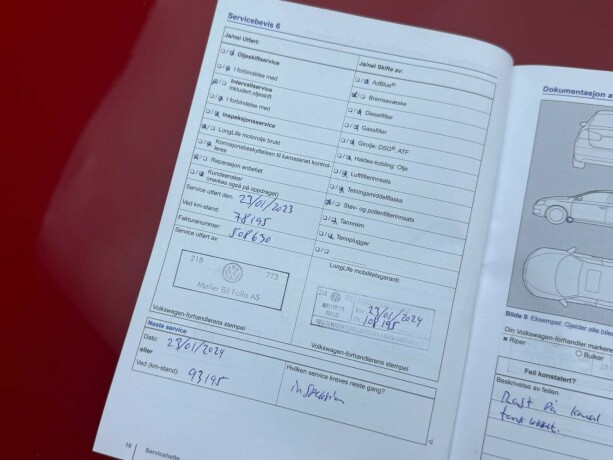 Servicebevis 6
Ja/nei Utført:
Oljeskiftservice
I forbindelse med
Intervallservice
inkludert oljeskift
I forbindelse med
Inspeksjonsservice
LongLife motorolje brukt
Korrosjonsbeskyttelsen til karosseriet kontrol-
leres
Reparasjon anbefalt
Kundeønsker
(merkes også på oppdraget)
Service utført den: 23/01/2023
Ved km-stand: 78195
Fakturanummer: 508630
Service utført av:
218 773
Møller Bil Follo AS
Volkswagen-forhandlerens stempel
Ja/nei Skifte av:
AdBlue®
Bremsevæske
Dieselfilter
Gassfilter
Girolje: DSG®, ATF
Haldex-kobling: Olje
Luftfilterinnsats
Tetningsmiddelflaske
Støv- og pollenfilterinnsats
Tannreim
Tennplugger
LongLife mobilitetsgaranti:
23/01/2024
108195
Volkswagen-forhandlerens stempel
Neste service
Dato: 23/01/2024
eller
Ved (km-stand): 93195
Hvilken service kreves neste gang?
inspeksjon
16 Servicehefte
Dokumentasjon a
Bilde 9 Eksempel: Gjelder alle bile
Din Volkswagen-forhandler marker
Riper
Bulker
Feil konstatert?
Beskrivelse av feilen
Rust på kanal